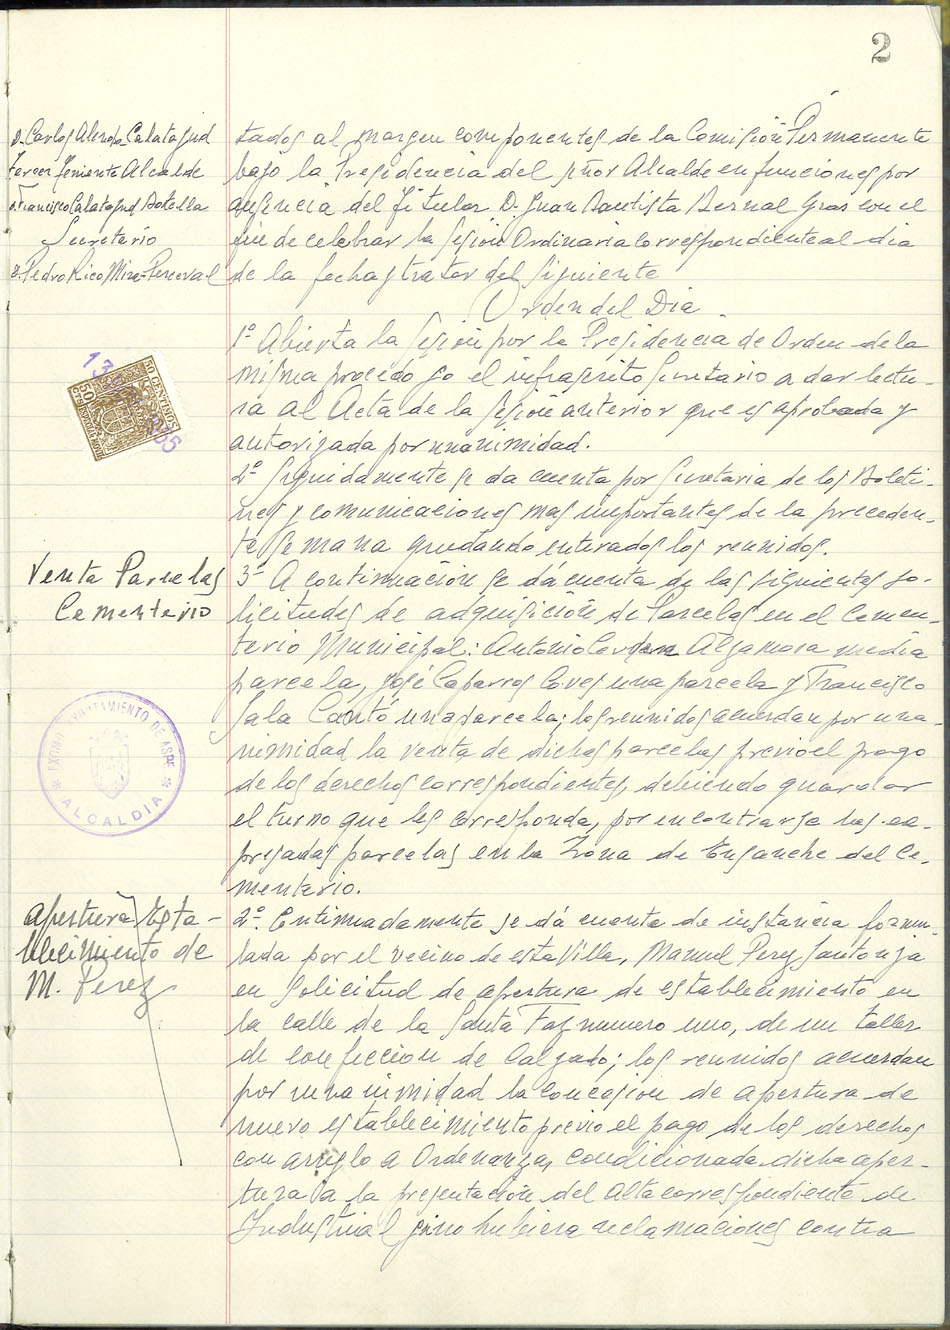 2
D. Carlos Alenda Calatayud
tercer Teniente Alcalde
D. Francisco Calatayud Botella
Secretario
D. Pedro Rico Mira-Perceval
tados al margen componentes de la Comisión Permanente
bajo la Presidencia del señor Alcalde en funciones por
ausencia del Titular D. Juan Bautista Bernal Gras con el
fin de celebrar la Sesión Ordinaria correspondiente al dia
de la fecha y tratar del siguiente
Orden del Dia
1º Abierta la Sesión por la Presidencia de Orden de la
misma procedo yo el infrascrito Secretario a dar lectu-
ra al Acta de la sesión anterior que es aprobada y
autorizada por unanimidad.
2º Seguidamente se da cuenta por Secretaria de los Boleti-
nes y comunicaciones mas importantes de la preceden-
te semana quedando enterados los reunidos.
Venta Parcelas
Cementerio
3º A continuación se dá cuenta de las siguientes so-
licitudes de adquisición de Parcelas en el Cemen-
terio Municipal: Antonio Algamora media
parcela, José Caparros Coves una parcela y Francisco
Sala Cantó una parcela; los reunidos acuerdan por una-
nimidad la venta de dichas parcelas previo el pago
de los derechos correspondientes, debiendo guardar
el turno que les corresponda, por encontrarse las ex-
presadas parcelas en la Zona de Ensanche del Ce-
menterio.
Apertura Esta-
blecimiento de
M. Perez
2º Continuadamente se dá cuenta de instancia formu-
lada por el vecino de esta Villa, Manuel Perez Santonja
en solicitud de apertura de establecimiento en
la calle de la Santa Faz numero uno, de un taller
de confeccion de Calzado; los reunidos acuerdan
por unanimidad la concesion de apertura de
nuevo establecimiento previo el pago de los derechos
con arreglo a Ordenanza, condicionada dicha aper-
tura a la presentación del Alta correspondiente de
Industrial si no hubiera reclamaciones contra
50 CENTIMOS
50
EXCMO. AYUNTAMIENTO DE ASPE
* ALCALDIA *